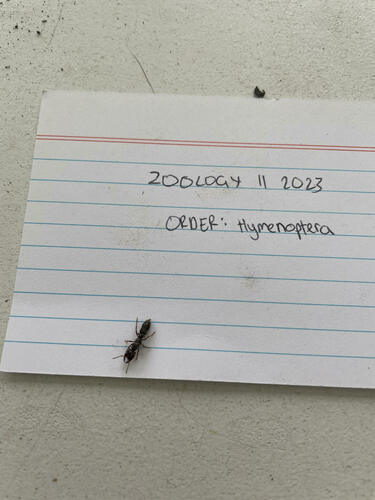 ZOOLOGY 11 2023
ORDER: Hymenoptera